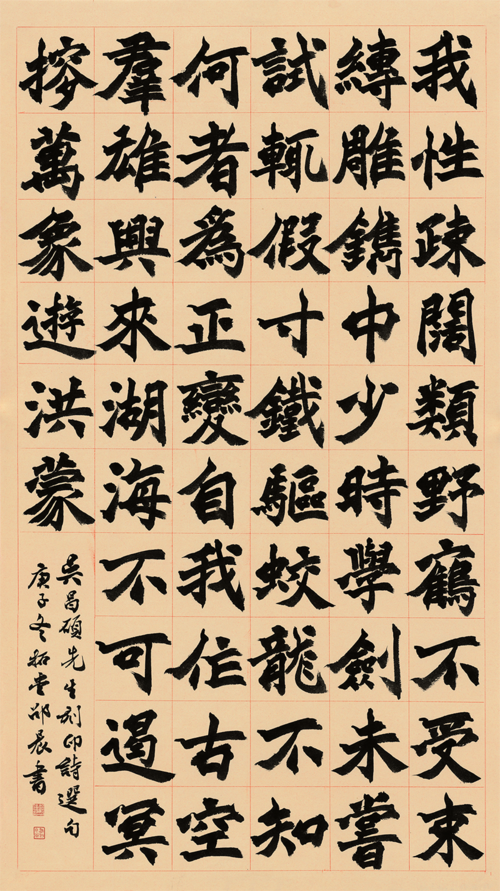 我性疎闊類野鶴不受束
縛雕鐫中少時學劍未嘗
試輒假寸鐵驅蛟龍不知
何者爲正變自我作古空
羣雄興來湖海不可遏冥
搜萬象遊洪蒙
吳昌碩先生刻印詩選句
庚子冬堂邵晨書